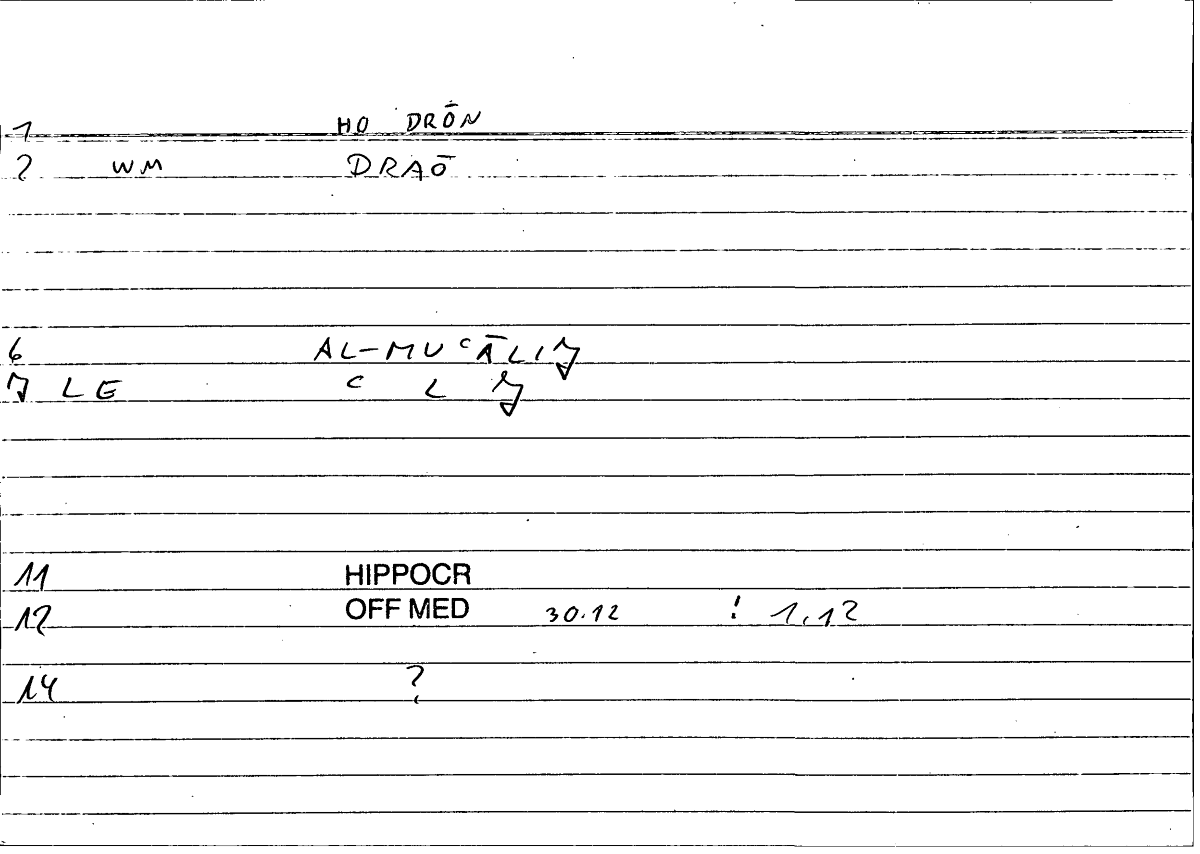 1 HO DRŌN
2 WM DRAŌ
6 AL-MU ʿĀLIJ
7 LE ʿ L J
11 HIPPOCR
12 OFF MED 30.12 ! 1,12
14 ?